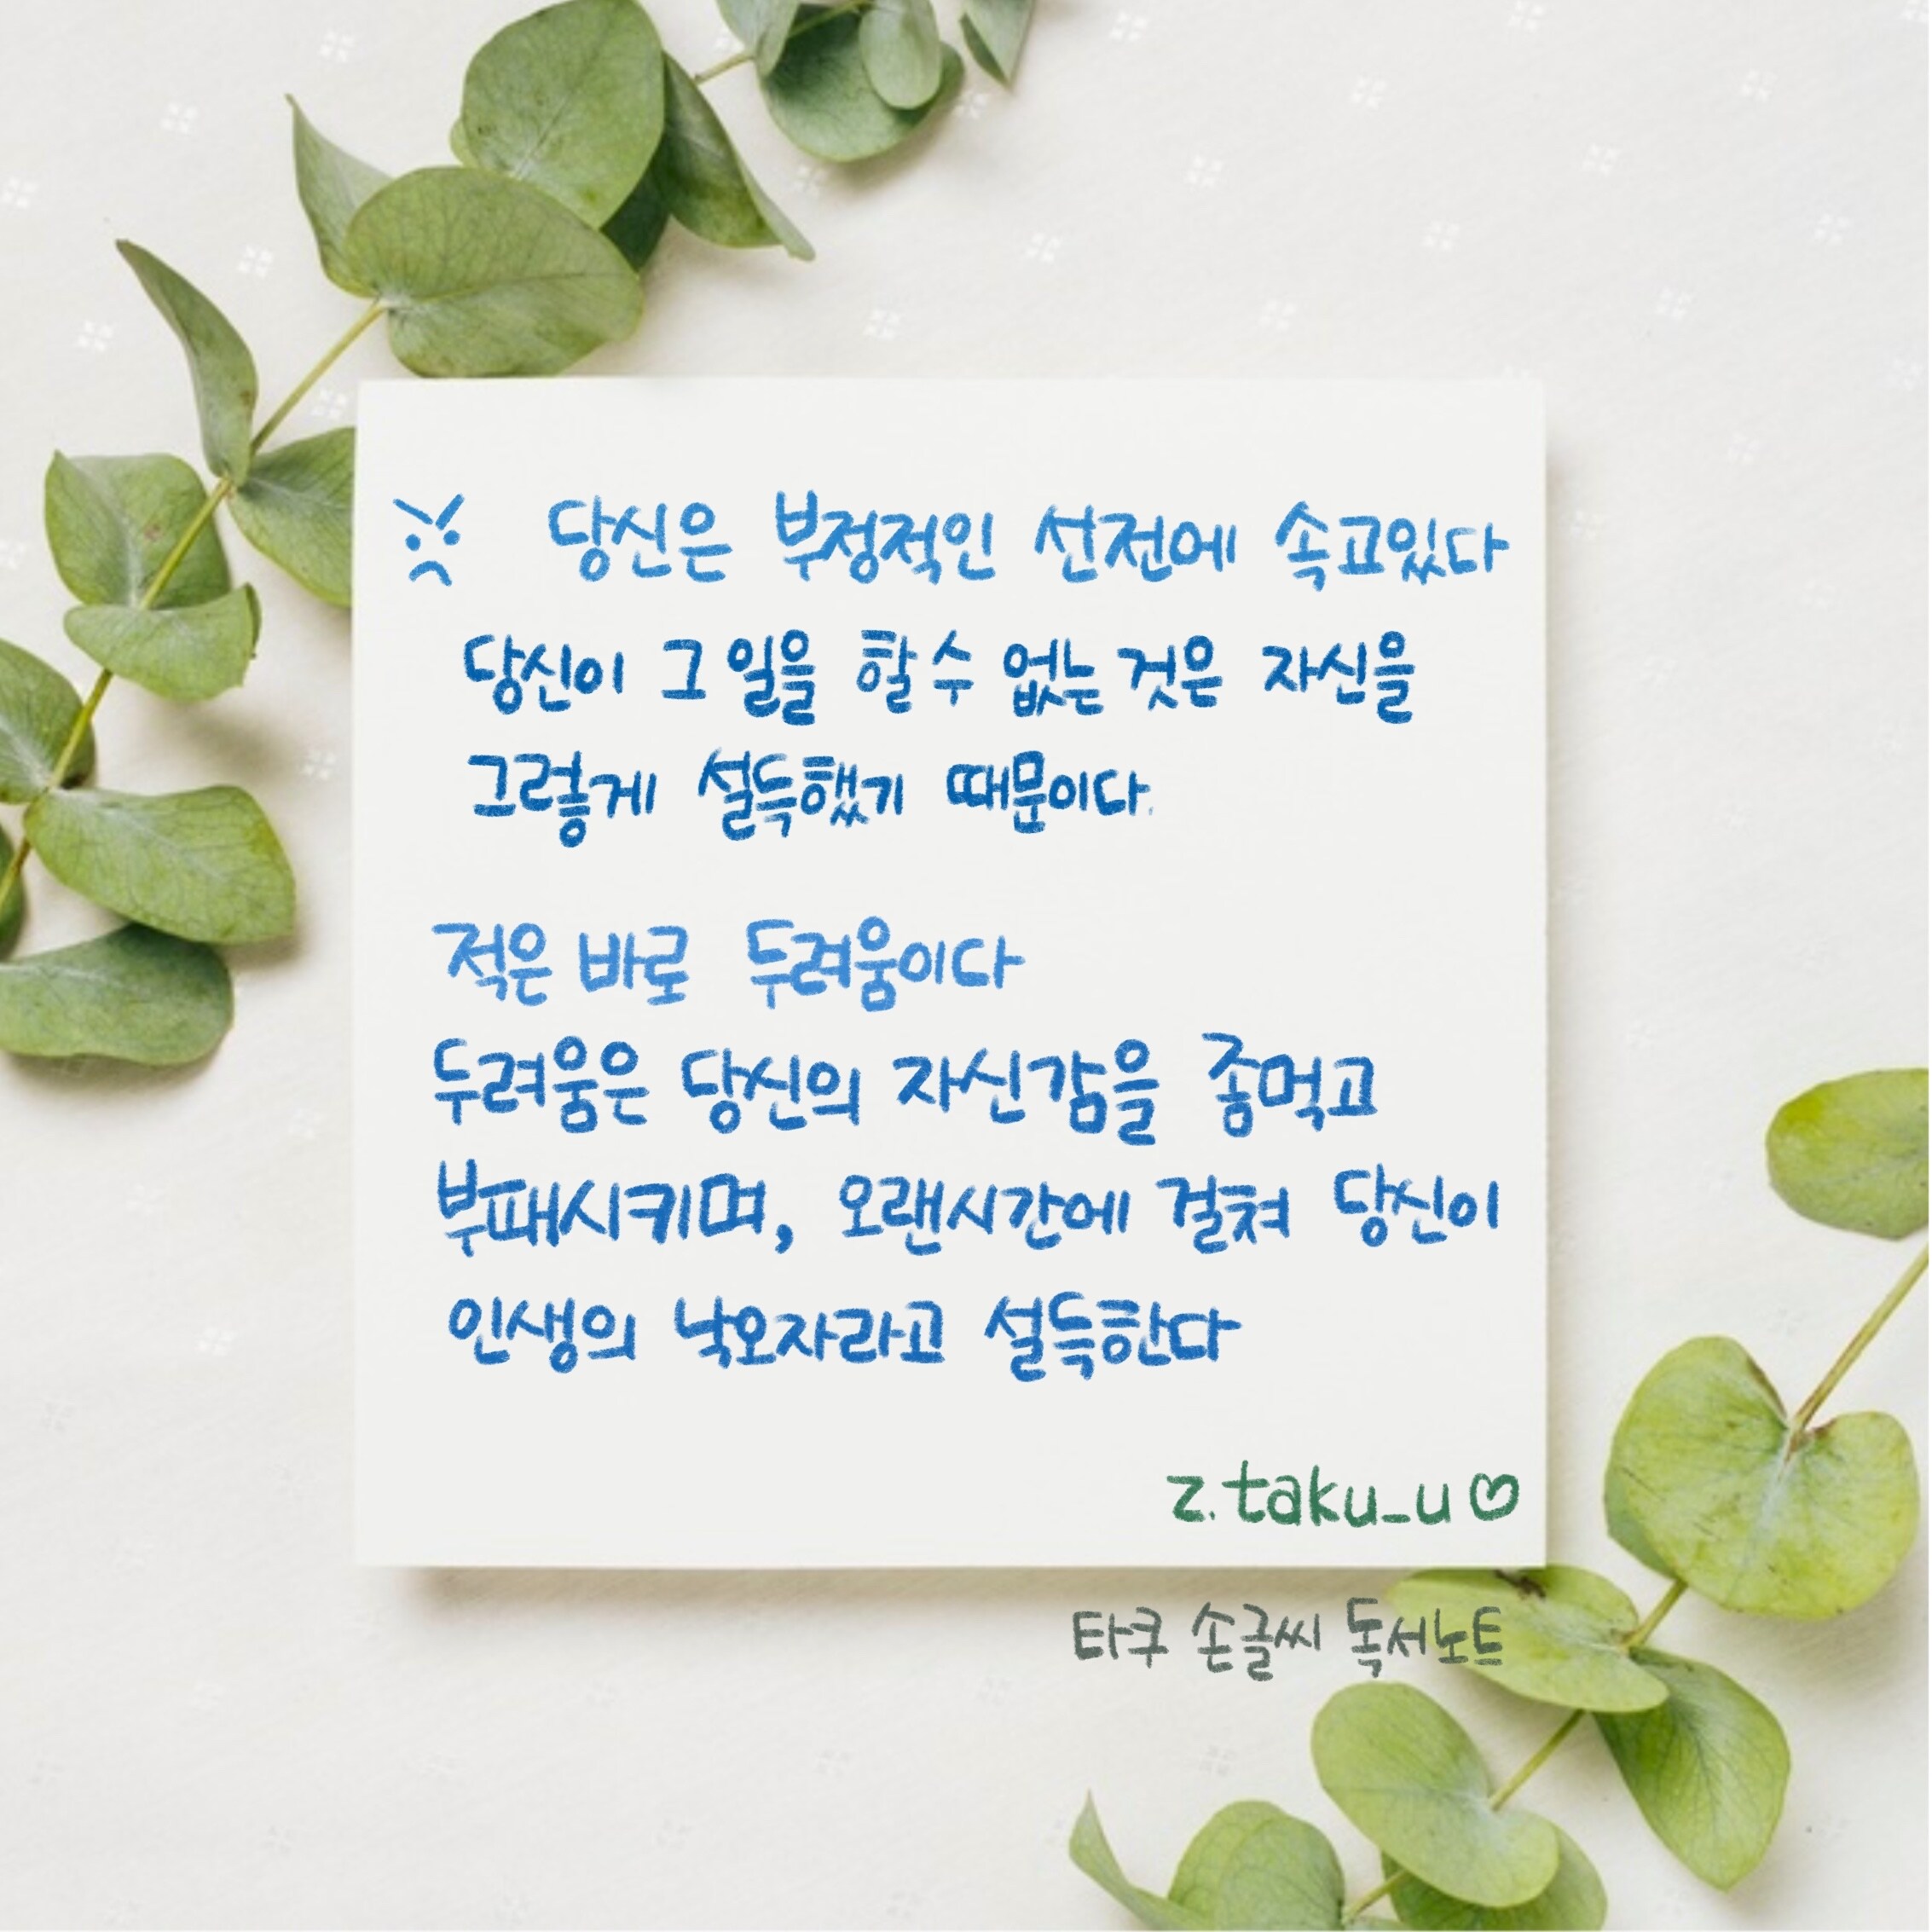 당신은 부정적인 선전에 속고있다
당신이 그 일을 할 수 없는 것은 자신을
그렇게 설득했기 때문이다.
적은 바로 두려움이다
두려움은 당신의 자신감을 좀먹고
부패시키며, 오랜시간에 걸쳐 당신이
인생의 낙오자라고 설득한다
z.taku_u♡
타쿠 손글씨 독서노트